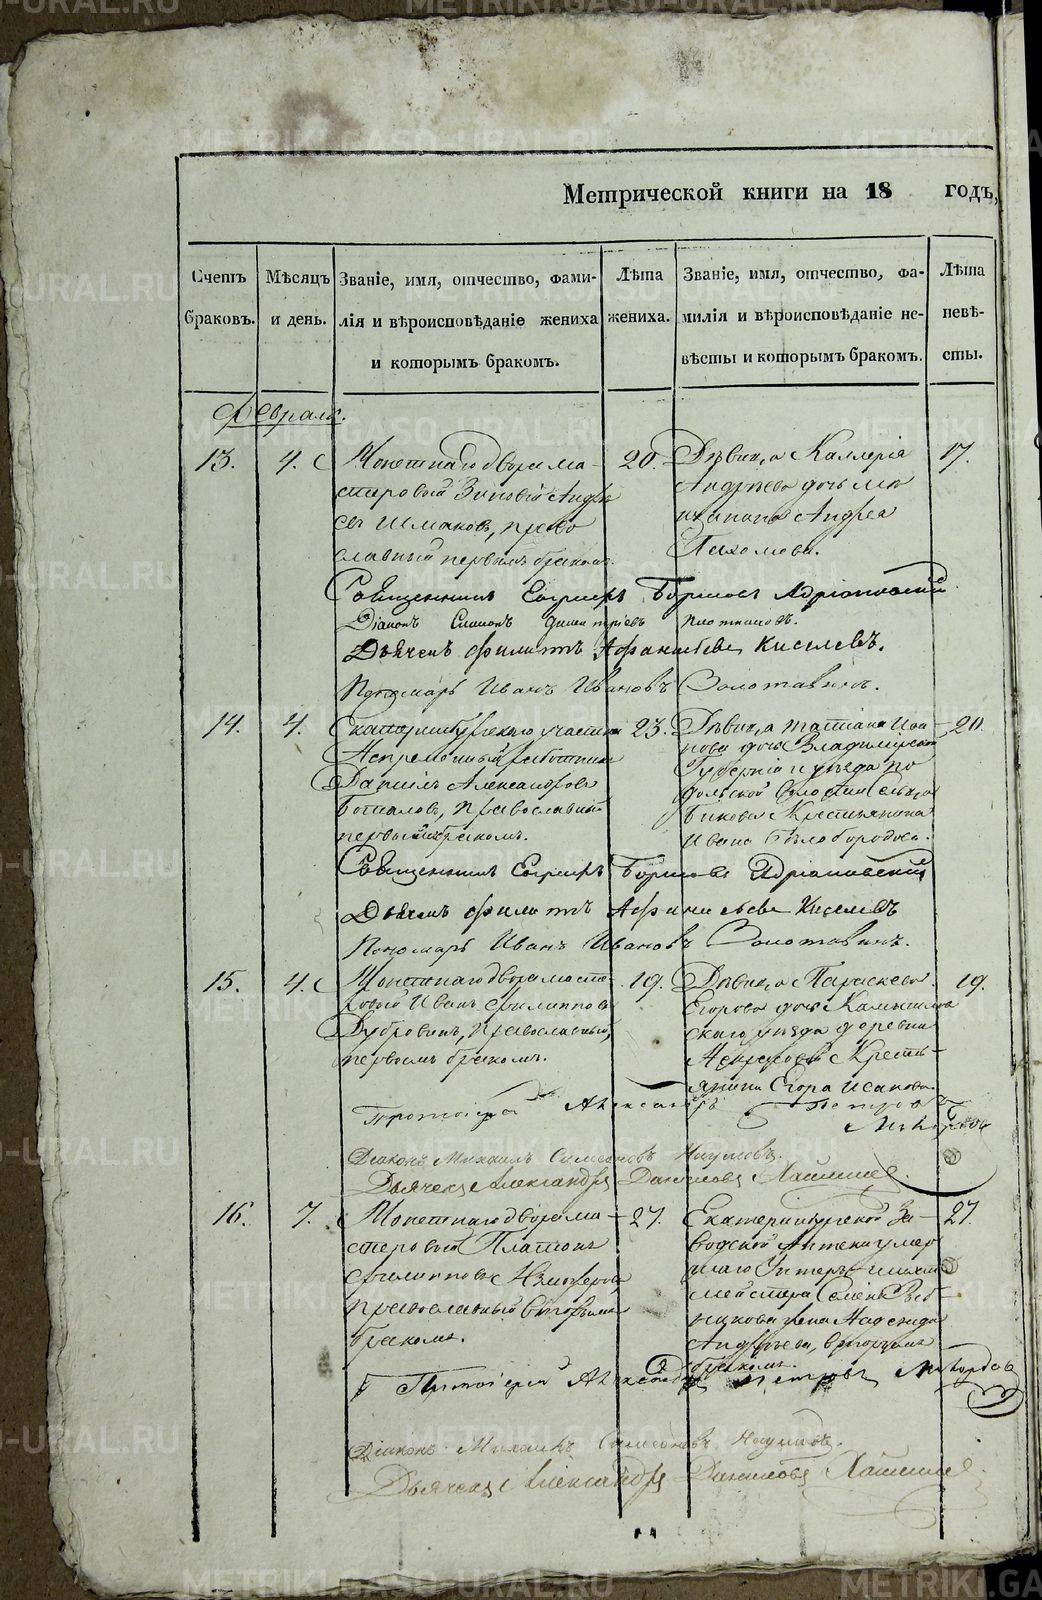 Метрической книги на 18 годъ,
Счетъ браковъ.
Мѣсяцъ и день.
Званіе, имя, отчество, фами-
лія и вѣроисповѣданіе жениха
и которымъ бракомъ.
Лѣта жениха.
Званіе, имя, отчество, фа-
милія и вѣроисповѣданіе не-
вѣсты и которымъ бракомъ.
Лѣта невѣ-
сты.
Февраля.
13.
4.
Монетнаго двора ма-
стеровой Зиновій Андре
евъ Шмаковъ, право
славный первымъ бракомъ.
20.
Дѣвица Каллерія
Андреева дочь мѣ
щанина Андрея
Пахомова.
17.
Священникъ Георгій Адріановскій
Діаконъ Симеонъ Димитріевъ Плотниковъ.
Дьячекъ Филиппъ Афанасьевъ Киселевъ.
Пономарь Иванъ Ивановъ Золотавинъ.
14.
4.
Екатеринбургскаго участка
Непремѣнный работникъ
Даніилъ Александровъ
православный
первымъ бракомъ.
23.
Дѣвица Татіана Ива
нова дочь Владимірской
Губерніи и уѣзда по
дольской волости сельца
Бикова Крестьянина
Ивана Бѣлобородова.
20.
Священникъ Адріановскій
Дьячекъ Филиппъ Афанасьевъ Киселевъ
Пономарь Иванъ Ивановъ Золотавинъ.
15.
4.
Монетнаго двора масте
ровой Иванъ Филипповъ
Дубровинъ, православный,
первымъ бракомъ.
19.
Дѣвица Параскева
Егорова дочь Камышлов
скаго уѣзда деревни
Некрасовой Кресть-
янина Егора Исакова.
19.
Протоіерей Александръ Петровъ
Діаконъ Михаилъ Симеоновъ Наумовъ.
Дьячекъ Александръ Даниловъ
16.
7.
Монетнаго двора ма-
стеровой Платонъ
Филипповъ
православный вторымъ
бракомъ.
27.
Екатеринбургской За-
водской Аптеки умер
шаго Унтеръ-шихт
мейстера Семена Рыб-
никова жена Надежда
Андреева, вторымъ
бракомъ.
27.
Протоіерей Александръ Петровъ
Діаконъ Михаилъ Симеоновъ Наумовъ.
Дьячекъ Александръ Даниловъ
METRIKI.GASO-URAL.RU